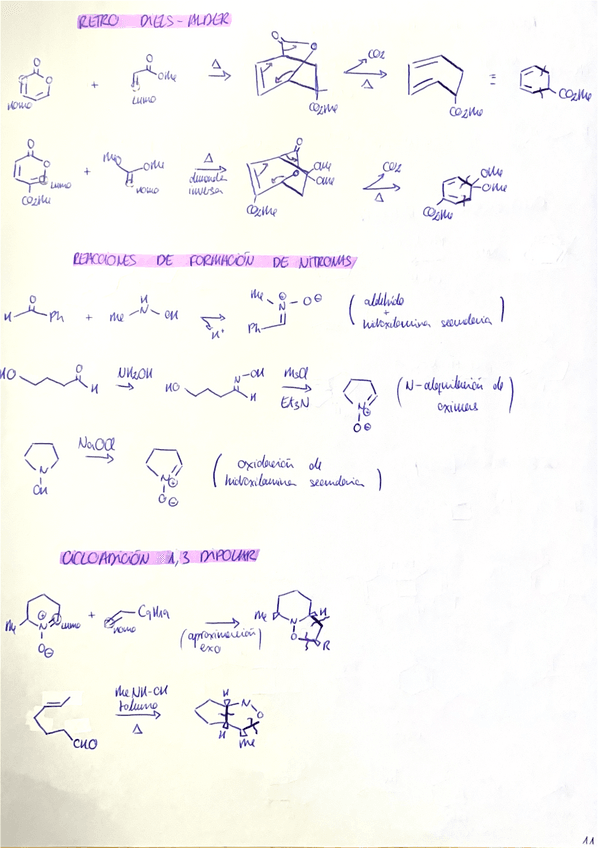 RETRO DIELS-ALDER
O O HOMO + O OMe LUMO Δ O O CO2Me CO2 Δ CO2Me ≡ CO2Me
O O LUMO CO2Me + MeO OMe HOMO Δ demanda inversa O O OMe OMe CO2Me CO2 Δ OMe OMe CO2Me
REACCIONES DE FORMACIÓN DE NITRONAS
H O Ph + Me H N OH H+ Me N ⊕ O ⊖ Ph ( aldehido + hidroxilamina secundaria )
HO O H NH2OH HO N OH H MsCl Et3N N ⊕ O ⊖ ( N-alquilación de oximas )
N OH NaOCl N ⊕ O ⊖ ( oxidación de hidroxilamina secundaria )
CICLOADICIÓN 1,3 DIPOLAR
Me N ⊕ O ⊖ LUMO + C9H19 HOMO ( aproximación exo ) Me N O H R
CHO MeNH-OH tolueno Δ H H N O Me
11